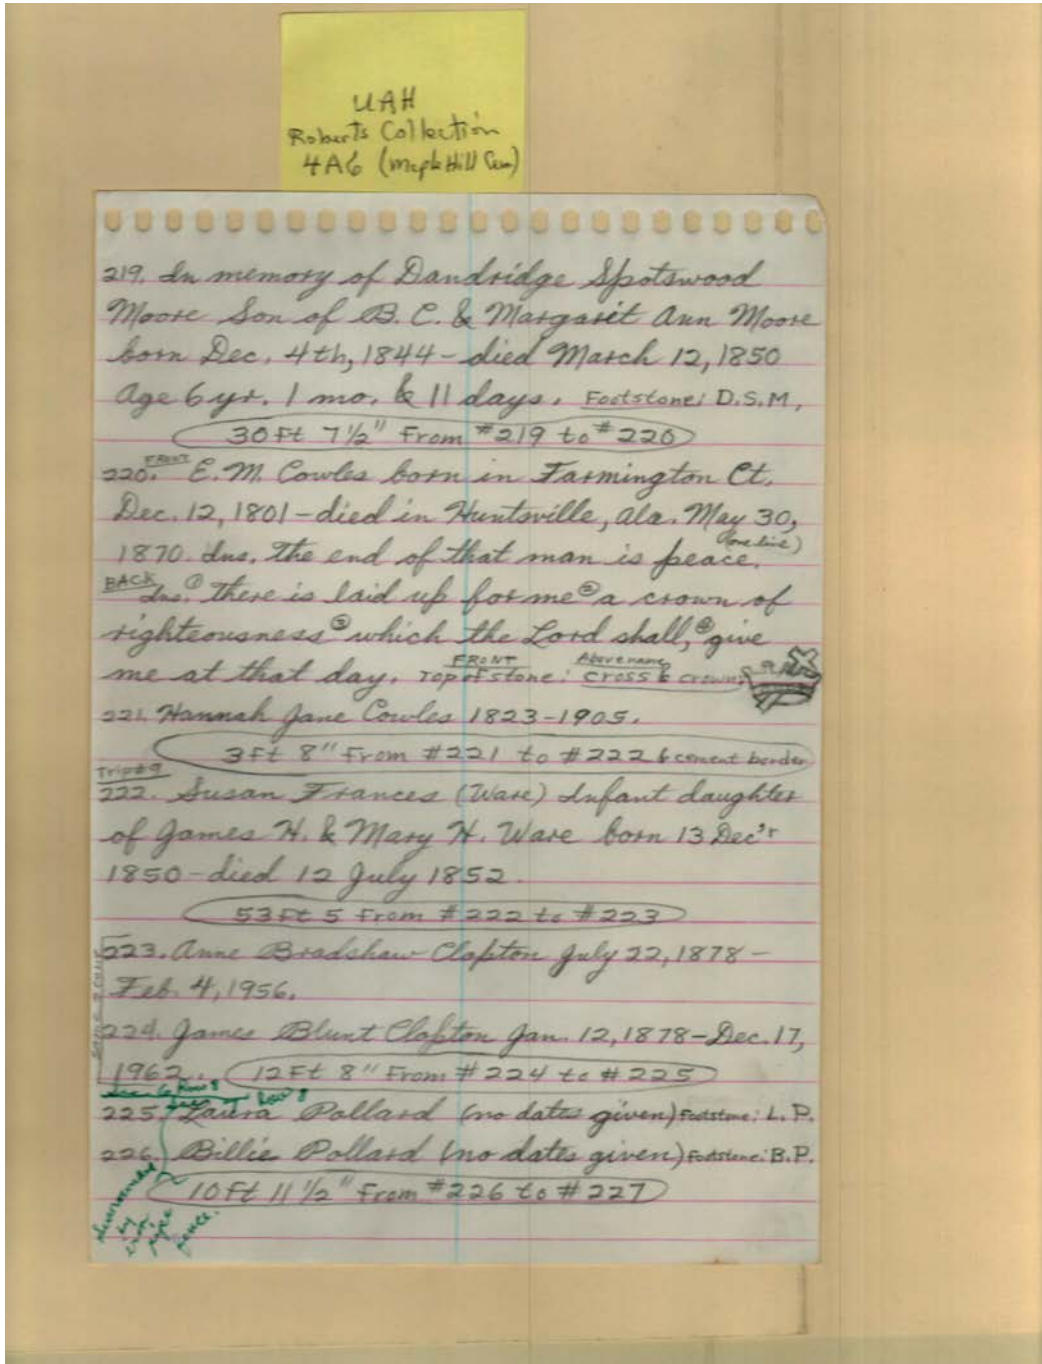 UAH
Roberts Collection
4A6 (Maple Hill Cem)
219. In memory of Dandridge Spotswood
Moore Son of B. C. & Margarit Ann Moore
born Dec. 4th, 1844 - died March 12, 1850
Age 6 yr. 1 mo. & 11 days. Footstone: D.S.M.
30 Ft 7 1/2" From #219 to #220
FRONT
220. E. M. Cowles born in Farmington Ct.
Dec. 12, 1801 - died in Huntsville, Ala. May 30,
(one line)
1870. Ins. The end of that man is peace.
BACK
Ins. ① There is laid up for me ② a crown of
righteousness ③ which the Lord shall, ④ give
FRONT Above name
me at that day. Top of stone: cross & crown
221. Hannah Jane Cowles 1823-1905.
3 Ft 8" From #221 to #222 & cement border
Trip #9
222. Susan Frances (Ware) Infant daughter
of James H. & Mary H. Ware born 13 Dec'r
1850 - died 12 July 1852.
53 Ft 5 From #222 to #223
SAME STONE
223. Anne Bradshaw Clopton July 22, 1878 -
Feb. 4, 1956.
224. James Blunt Clopton Jan. 12, 1878 - Dec. 17,
1962. 12 Ft 8" From #224 to #225
Row 8
Row 8
225. Laura Pollard (no dates given) Footstone: L. P.
226. Billie Pollard (no dates given) Footstone: B. P.
10 Ft 11 1/2" From #226 to #227
Surrounded
by
iron
pipe
fence.